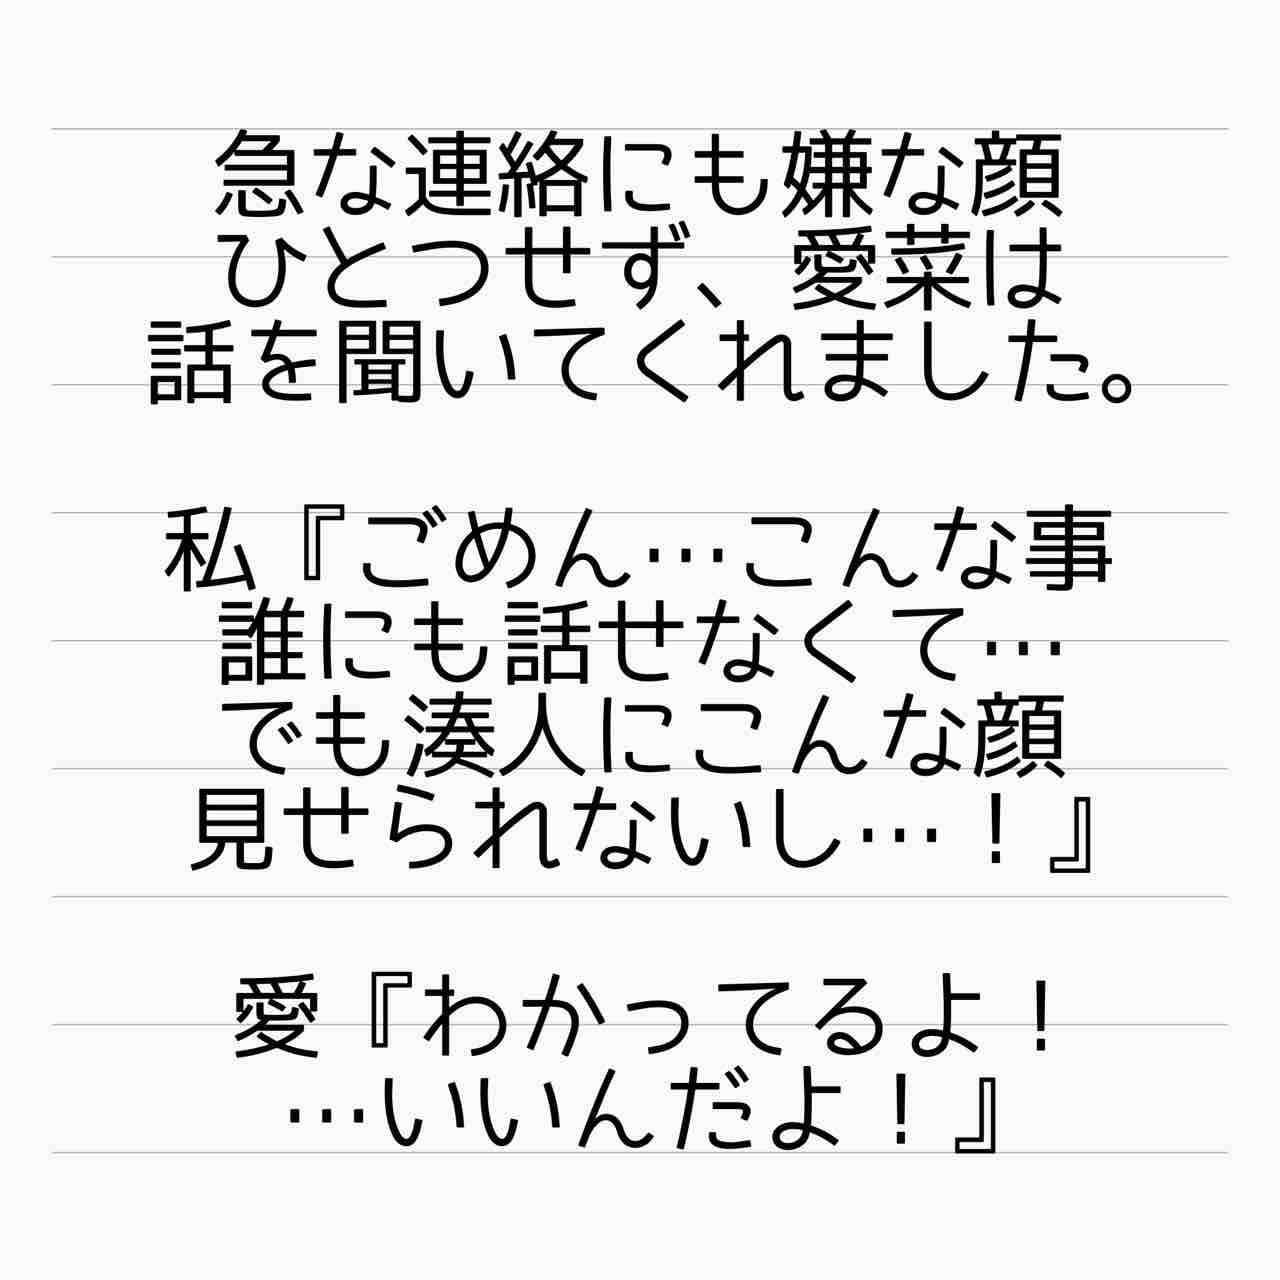 急な連絡にも嫌な顔
ひとつせず、愛菜は
話を聞いてくれました。
私『ごめん…こんな事
誰にも話せなくて…
でも湊人にこんな顔
見せられないし…！』
愛『わかってるよ！
…いいんだよ！』